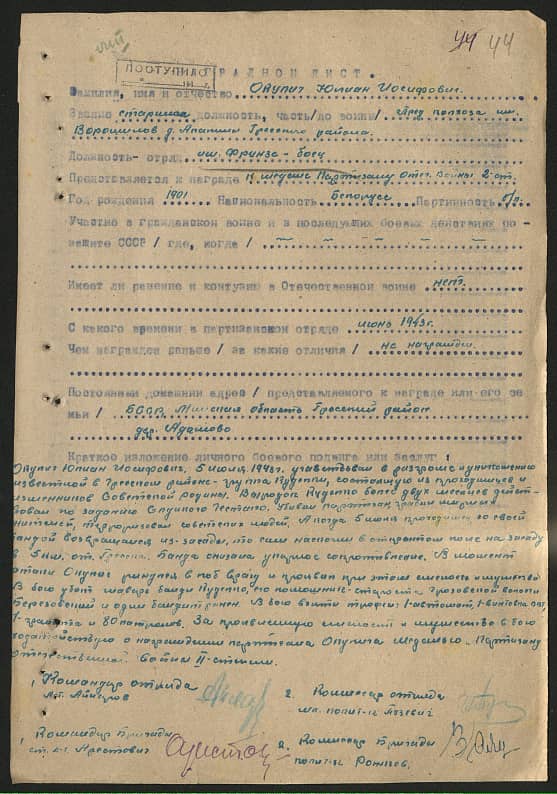 44 44
ПОСТУПИЛО
РАДНОЙ ЛИСТ.
Фамилия, имя и отчество Окулич Юлиан Иосифович.
Звание старшина должность, часть/до войны/ пред колхоза им.
Ворошилова д. Апанки Гресского района.
Должность- отряд им. Фрунзе - боец
Представляется к награде к медали Партизану Отеч. Войны 2 ст.
Год рождения 1901 Национальность Белорус Партийность б/п.
Участие в гражданской войне и в последующих боевых действиях по -
защите СССР / где, когда /
Имеет ли ранение и контузию в Отечественной войне нет.
С какого времени в партизанском отряде июнь 1943г.
Чем награжден раньше / за какие отличия / не награжден.
Постоянный домашний адрес / представляемого к награде или его се
мьи / БССР, Минская область Гресский район
дер. Адамово
Краткое изложение личного боевого подвига или заслуг :
Окулич Юлиан Иосифович. 5 июля 1943г. участвовал в разгроме и уничтожению
известной в Гресском районе - группа Руденки, состоящую из
изменников Советской родины. Руденко более двух месяцев дейст-
вовал по заданию Гестапо. Убивал партизан, грабил мирных
жителей, терроризовал советских людей. А когда 5 июня со своей
бандой возвращался из-засады, на засаду
в 5 км. от Гресска. Банда оказала упорное сопротивление. В момент
атаки Окулич ринулся в бой врагу и проявил при этом смелость и мужество
В бою убит главарь банды Руденко, его помощник - староста волости
Березовский и один бандит ранен. В бою взяты трофеи: 1-автомат, 1-винтовка
1-граната и 80 патронов. За проявленную смелость и мужество в бою
ходатайствую о награждении партизана Окулича Медалью Партизану
Отечественной войны II-степени.
1, Командир отряда
2. Комиссар отряда
мл. полит-к
1, Командир Бригады
ст. л-т Арестович
2. Комиссар Бригады
полит-к